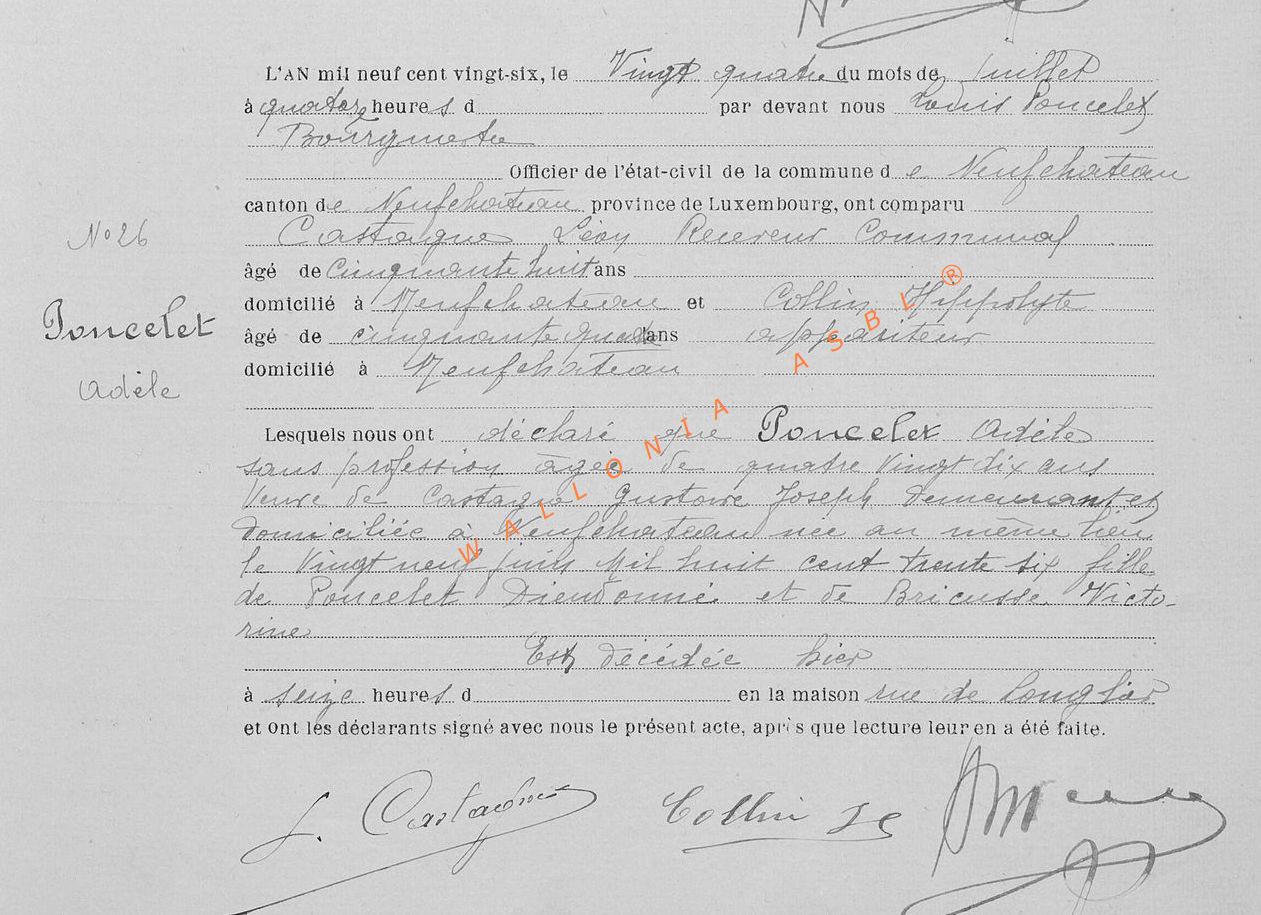 L'AN mil neuf cent vingt-six, le Vingt quatre du mois de Juillet
à quatorze heures d par devant nous Louis Poncelet
Bourgmestre
Officier de l'état-civil de la commune de Neufchateau
canton de Neufchateau province de Luxembourg, ont comparu
Castagne Léon Receveur Communal
N° 26
âgé de Cinquante huit ans
domicilié à Neufchateau et Collin Hippolyte
Poncelet
âgé de cinquante quatre ans appariteur
domicilié à Neufchateau
Adèle
Lesquels nous ont déclaré que Poncelet Adèle
sans profession âgée de quatre Vingt dix ans
Veuve de Castagne Gustave Joseph Demeurant et
Domiciliée à Neufchateau née au même lieu
le Vingt neuf juin Mil huit cent trente six fille
de Poncelet Dieudonné et de Bricusse Victo-
rine
Est décédée hier
à seize heures d en la maison rue de Longlier
et ont les déclarants signé avec nous le présent acte, après que lecture leur en a été faite.
L. Castagne Collin
WALLONIA ASBL ®